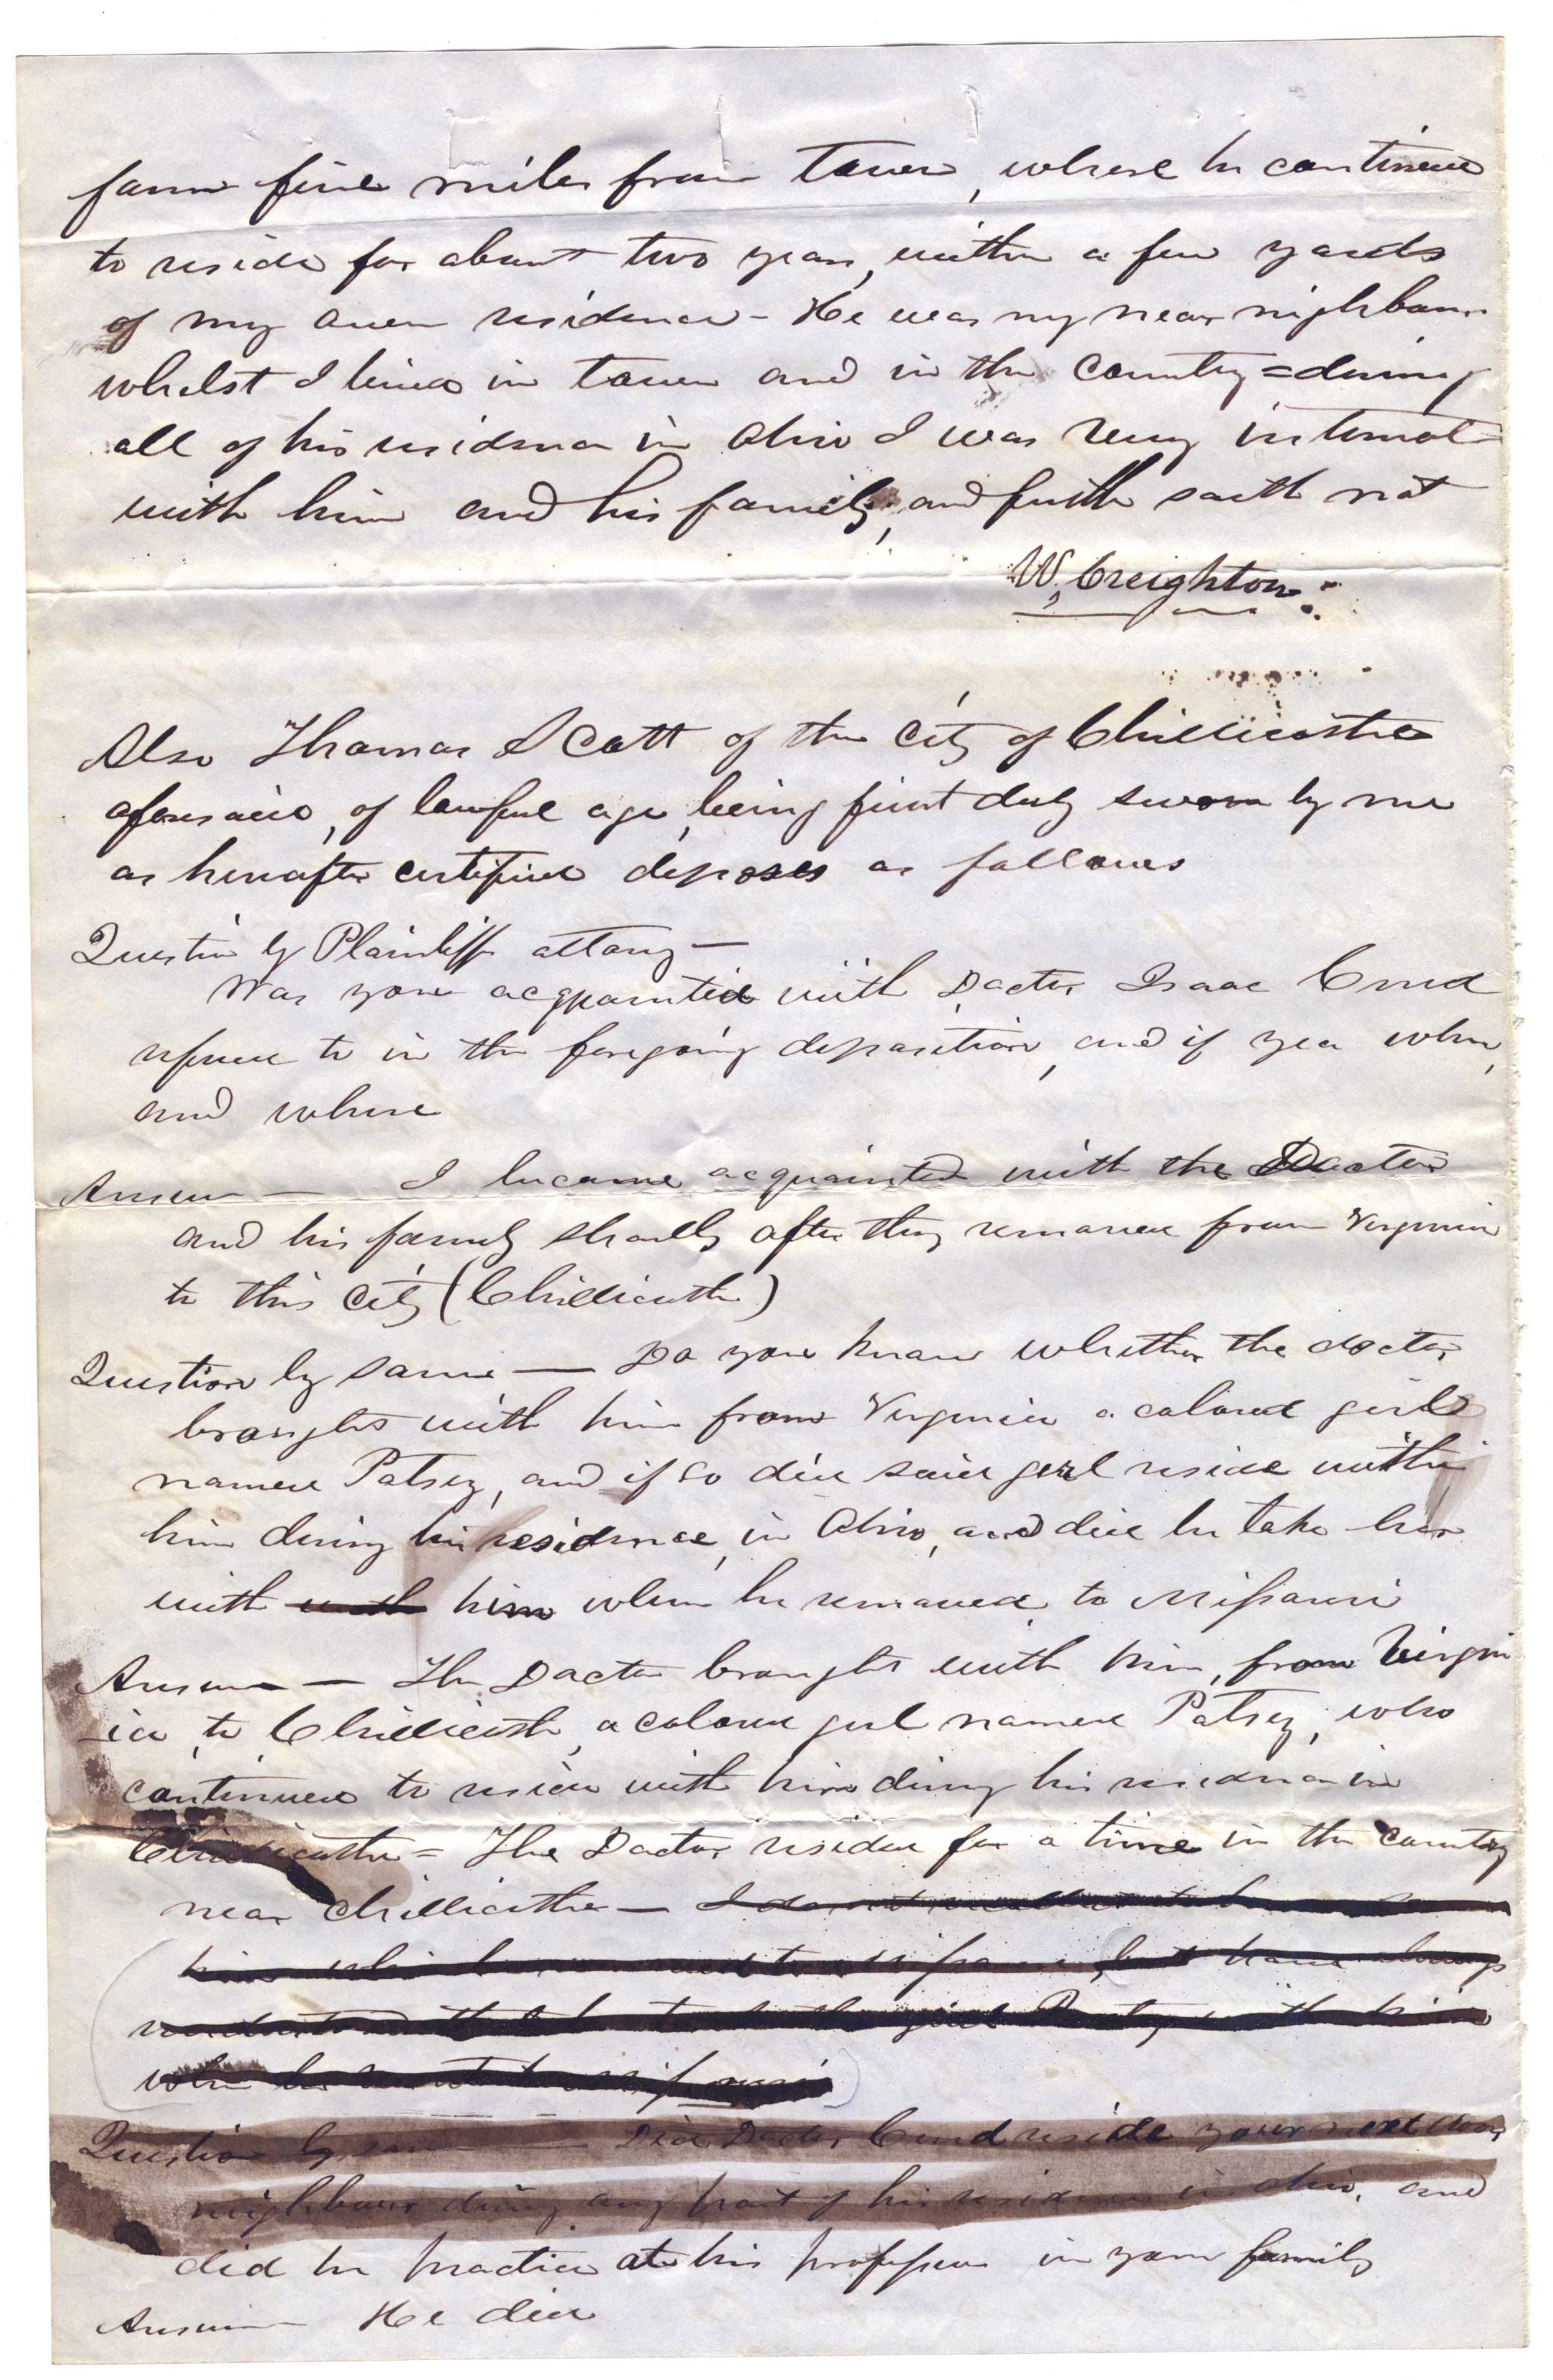 farm five miles from town, where he continued
to reside for about two years, within a few yards
of my own residence - He was my near neighbour
whilst I lived in town and in the country = during
all of his residence in Ohio I was very intimate
with him and his family, and further saith not
W. Creighton
Also Thomas Scott of the City of Chillicothe
aforesaid, of lawful age, being first duly sworn by me
as hereafter certified deposes as follows
Question by Plaintiffs attorney —
Was you acquainted with Doctor Isaac
referred to in the foregoing deposition, and if yea when,
and where
Answer — I became acquainted with the Doctor
and his family shortly after they removed from Virginia
to this City (Chillicothe)
Question by same — Do you know whether the doctor
brought with him from Virginia a colored girl
named Patsey, and if so did said girl reside with
him during his residence, in Ohio, and did he take her
with with him when he removed to Missouri
Answer — The Doctor brought with him, from Virgin
ia, to Chillicothe, a colored girl named Patsey, who
continued to reside with him during his residence in
Chillicothe = The Doctor resided for a time in the Country
near Chillicothe — I do not recollect
him when he removed to Missouri, but have always
understood that he took the girl Patsy with him
when he went to Missouri
Question by same — Did Doctor reside your next door
neighbour during any part of his residence in Ohio, and
did he practice at his profession in your family
Answer — He did